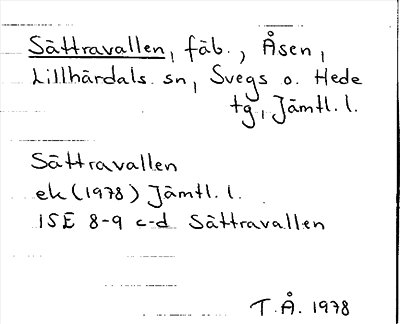 Sättravallen, fäb., Åsen,
Lillhärdals sn, Svegs o. Hede
tg, Jämtl. l.
Sättravallen
ek (1978) Jämtl. l.
15E 8-9 c-d Sättravallen
T.Å. 1978